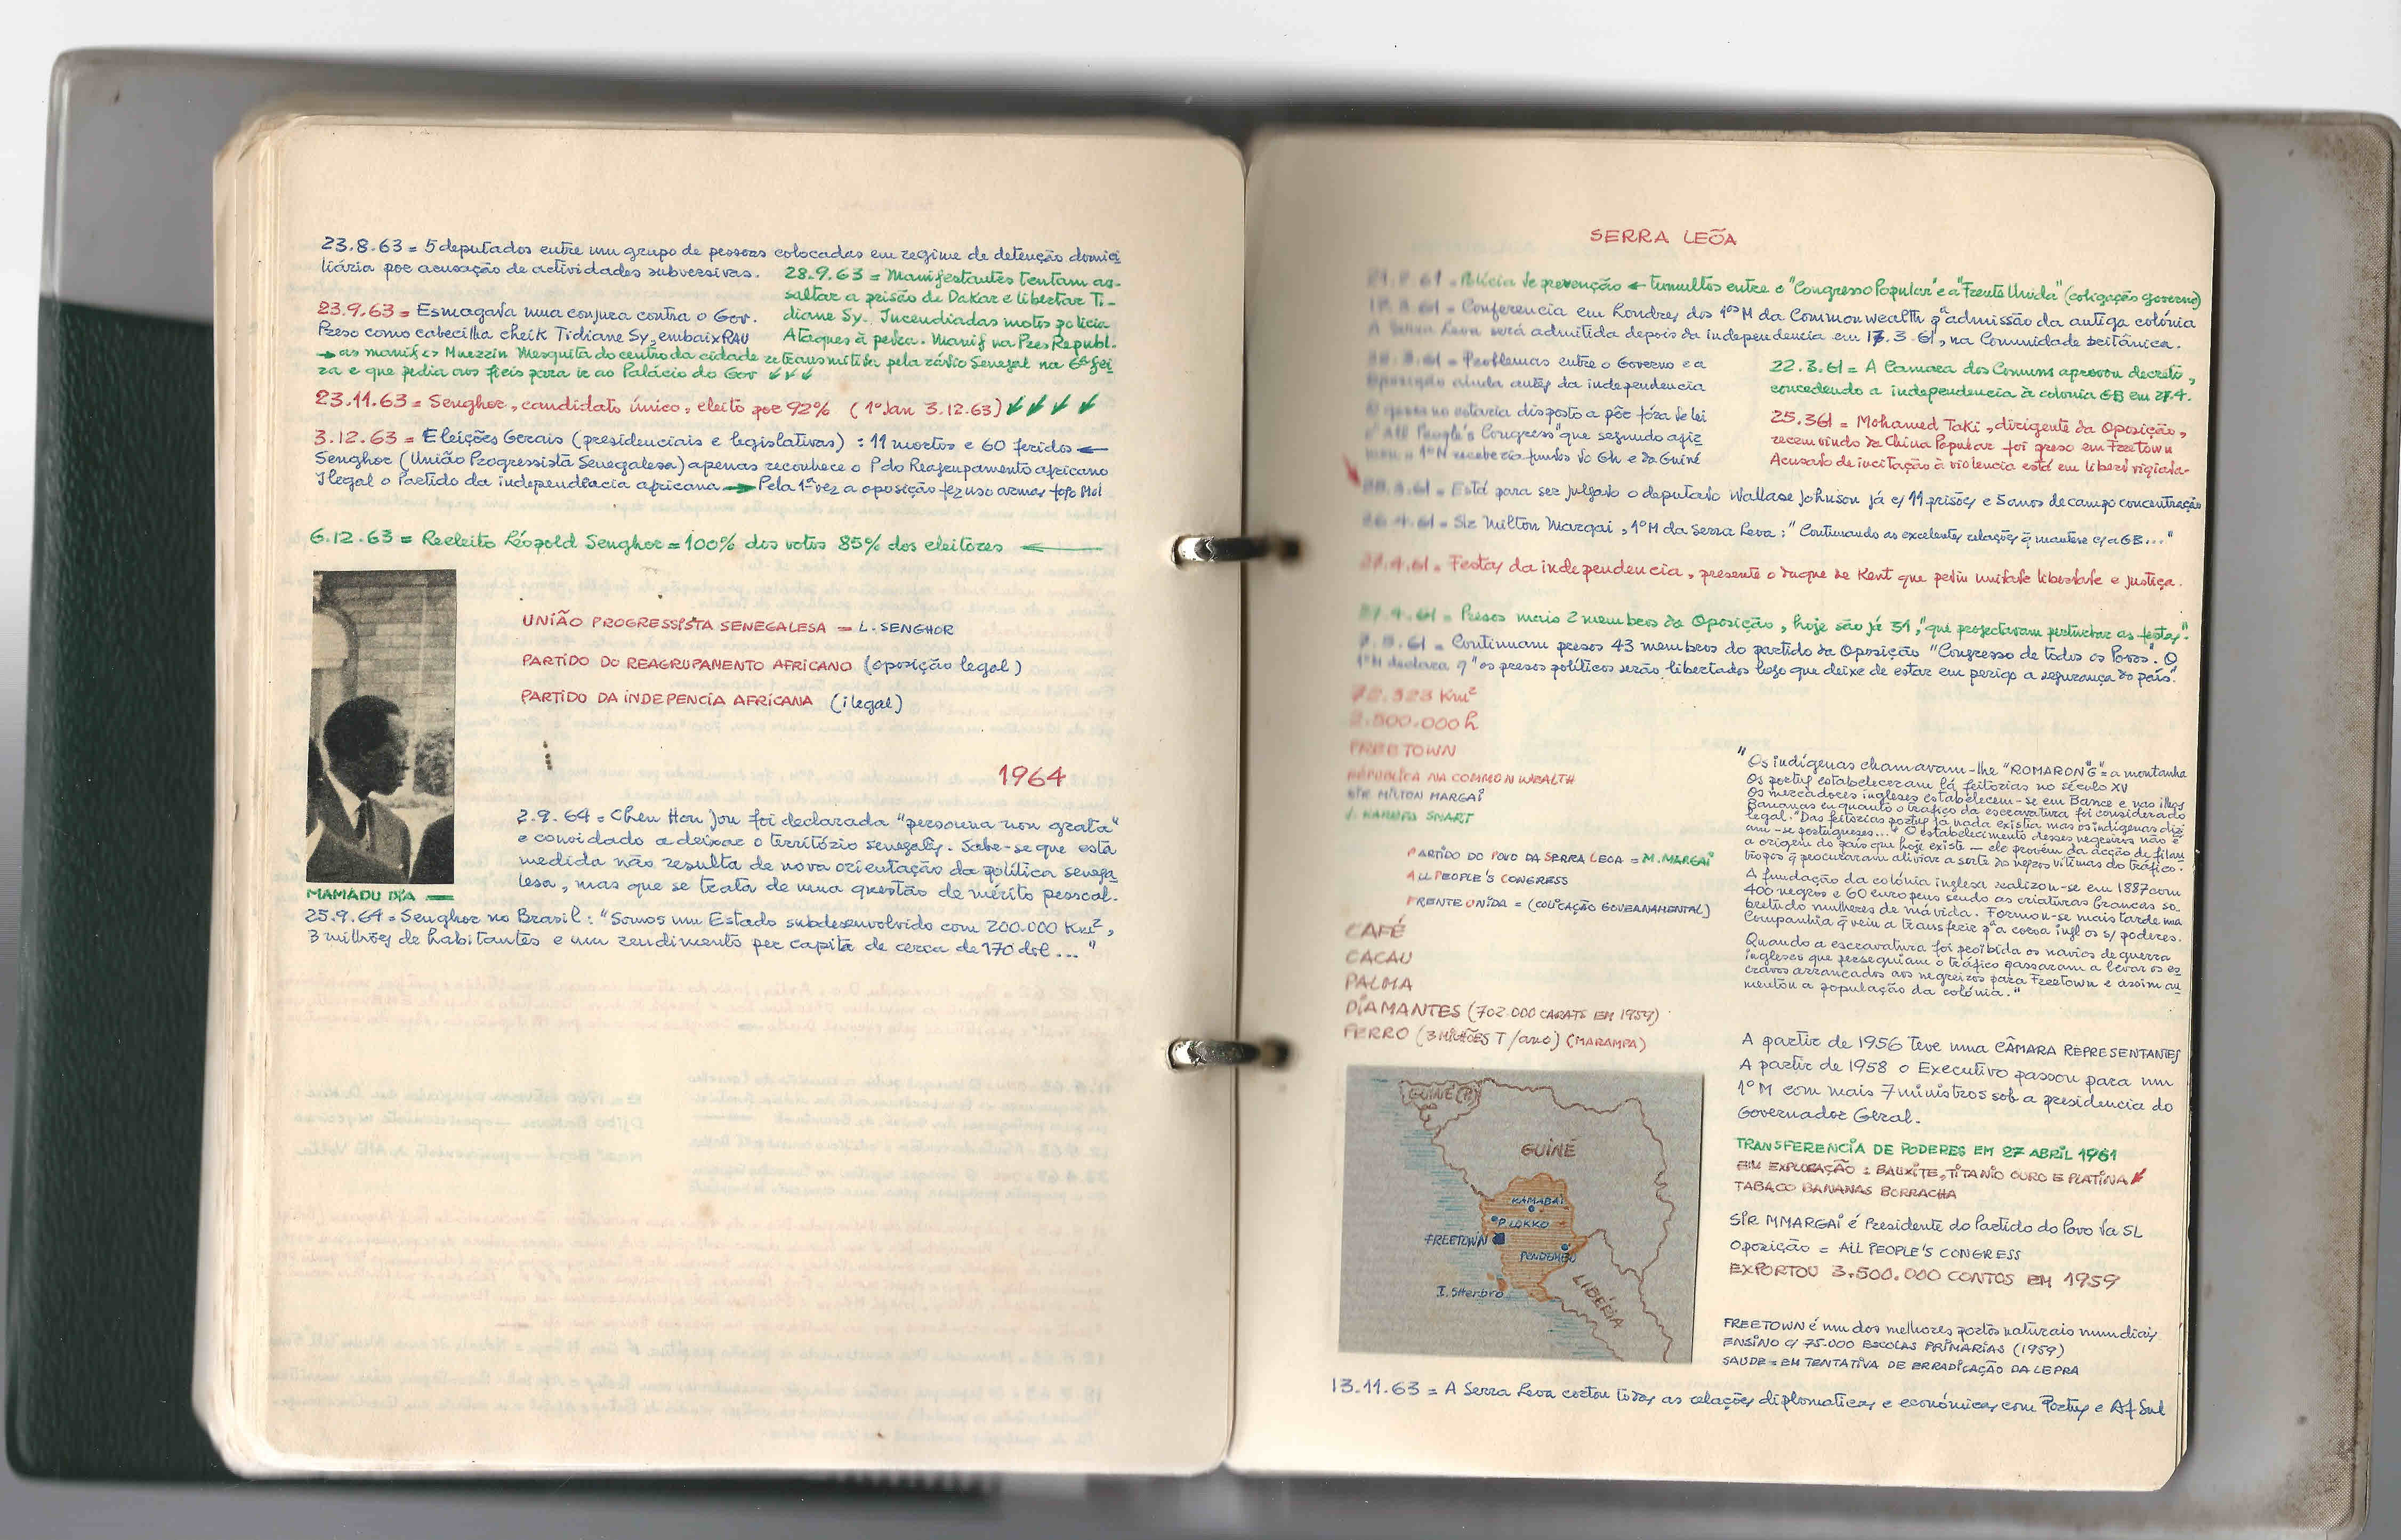 23.8.63 = 5 deputados entre um grupo de pessoas colocadas em regime de detenção domici
liária por acusação de actividades subversivas.
28.9.63 = Manifestantes tentam as-
saltar a prisão de Dakar e libertar Ti-
diane Sy. Incendiadas motos polícia
Ataques à pedra. Manif na Pres Republ.
23.9.63 = Esmagada uma conjura contra o Gov.
Preso como cabecilha cheik Tidiane Sy, embaix RAU
→ as manif Muezzin Mesquita do centro da cidade retransmitida pela rádio Senegal na 6ª fei
ra e que pedia aos fieis para ir ao Palácio do Gov ↙↙↙
23.11.63 = Senghor, candidato único, eleito por 92% (1º Jan 3.12.63) ↙↙↙↙
3.12.63 = Eleições Gerais (presidenciais e legislativas) : 11 mortos e 60 feridos ←
Senghor (União Progressista Senegalesa) apenas reconhece o P do Reagrupamento africano
Ilegal o Partido da independência africana → Pela 1ª vez a oposição fez uso armas
6.12.63 = Reeleito Léopold Senghor = 100% dos votos 85% dos eleitores ←
UNIÃO PROGRESSISTA SENEGALESA = L. SENGHOR
PARTIDO DO REAGRUPAMENTO AFRICANO (oposição legal)
PARTIDO DA INDEPENCIA AFRICANA (ilegal)
MAMADU DIA
1964
2.9.64 = Chen Hon Jou foi declarada "persouna non grata"
e convidado a deixar o território senegalês. Sabe-se que esta
medida não resulta de nova orientação da política senega
lesa, mas que se trata de uma questão de mérito pessoal.
25.9.64 = Senghor no Brasil : "Somos um Estado subdesenvolvido com 200.000 Km²,
3 milhões de habitantes e um rendimento per capita de cerca de 170 dol..."
SERRA LEÕA
21.2.61 = Polícia de prevenção ← tumultos entre o "Congresso Popular" e a "Frente Unida" (coligação governo)
Conferencia em Londres dos 1ºs M da Commonwealth pª admissão da antiga colónia
A Serra Leoa será admitida depois da independencia em 17.3.61, na Comunidade britânica.
Problemas entre o Governo e a
Oposição ainda antes da independencia
O governo estaria disposto a pôr fóra de lei
o "All People's Congress" que segundo afir
mou o 1ºM receberia fundos do Gh e da Guiné
22.3.61 = A Camara dos Comuns aprovou decreto,
concedendo a independencia à colonia GB em 27.4.
25.361 = Mohamed Taki, dirigente da Oposição,
recem vindo da China Popular foi preso em Freetown
Acusado de incitação à violencia está em liberd vigiada-
28.3.61 = Está para ser julgado o deputado Wallase Johnson já c/ 11 prisões e 5 anos de campo concentração
26.4.61 = Sir Milton Margai, 1ºM da Serra Leoa : "Continuando as excelentes relações q mantere c/ a GB..."
27.4.61 = Festas da independencia, presente o duque de Kent que pediu unidade liberdade e justiça.
27.4.61 = Presos mais 2 membros da Oposição, hoje são já 31, "que projectavam perturbar as festas".
7.5.61 = Continuam presos 43 membros do partido da Oposição "Congresso de todos os Povos". O
1ºM declara q "os presos políticos serão libertados logo que deixe de estar em perigo a segurança do país".
72.323 Km²
2.500.000 h
FREETOWN
RÉPUBLICA NA COMMON WEALTH
SIR MILTON MARGAI
J. KAREFA SMART
PARTIDO DO POVO DA SERRA LEOA = M. MARGAI
ALL PEOPLE'S CONGRESS
FRENTE UNIDA = (COLIGAÇÃO GOVERNAMENTAL)
CAFÉ
CACAU
PALMA
DIAMANTES (702.000 CARATS EM 1959)
FERRO (3 MILHÕES T /ano) (MARAMPA)
"Os indígenas chamavam-lhe "ROMARONG" = a montanha
Os portug estabeleceram lá feitorias no século XV
Os mercadores ingleses estabelecem-se em Bance e nas ilhas
Bananas enquanto o tráfico da escravatura foi considerado
legal. "Das feitorias portug já nada existia mas os indígenas dizi
am-se portugueses..." O estabelecimento desses negreiros não é
a origem do país que hoje existe — ele provém da acção de filan
tropos q procuraram aliviar a sorte do negros vítimas do tráfico.
A fundação da colónia inglesa realizou-se em 1887 com
400 negros e 60 europeus sendo as criaturas brancas so
bretudo mulheres de má vida. Formou-se mais tarde uma
Companhia q veiu a transferir pª a coroa ingl os s/ poderes.
Quando a escravatura foi proibida os navios de guerra
ingleses que perseguiam o tráfico passaram a levar os es
cravos arrancados aos negreiros para Freetown e assim au
mentou a população da colónia."
A partir de 1956 teve uma CÂMARA REPRESENTANTES
A partir de 1958 o Executivo passou para um
1º M com mais 7 ministros sob a presidencia do
Governador Geral.
TRANSFERENCIA DE PODERES EM 27 ABRIL 1961
EM EXPLORAÇÃO : BAUXITE, TITANIO OURO E PLATINA
TABACO BANANAS BORRACHA
SIR MMARGAI é Presidente do Partido do Povo da SL
Oposição = ALL PEOPLE'S CONGRESS
EXPORTOU 3.500.000 CONTOS EM 1959
FREETOWN é um dos melhores portos naturais mundiais
ENSINO c/ 75.000 ESCOLAS PRIMÁRIAS (1959)
SAUDE = EM TENTATIVA DE ERRADICAÇÃO DA LEPRA
GUINÉ (P.)
GUINÉ
KAMABAI
P. LOKKO
FREETOWN
PENDEMBU
I. Sherbro
LIBÉRIA
13.11.63 = A Serra Leoa cortou todas as relações diplomaticas e económicas com Portug e Af Sul